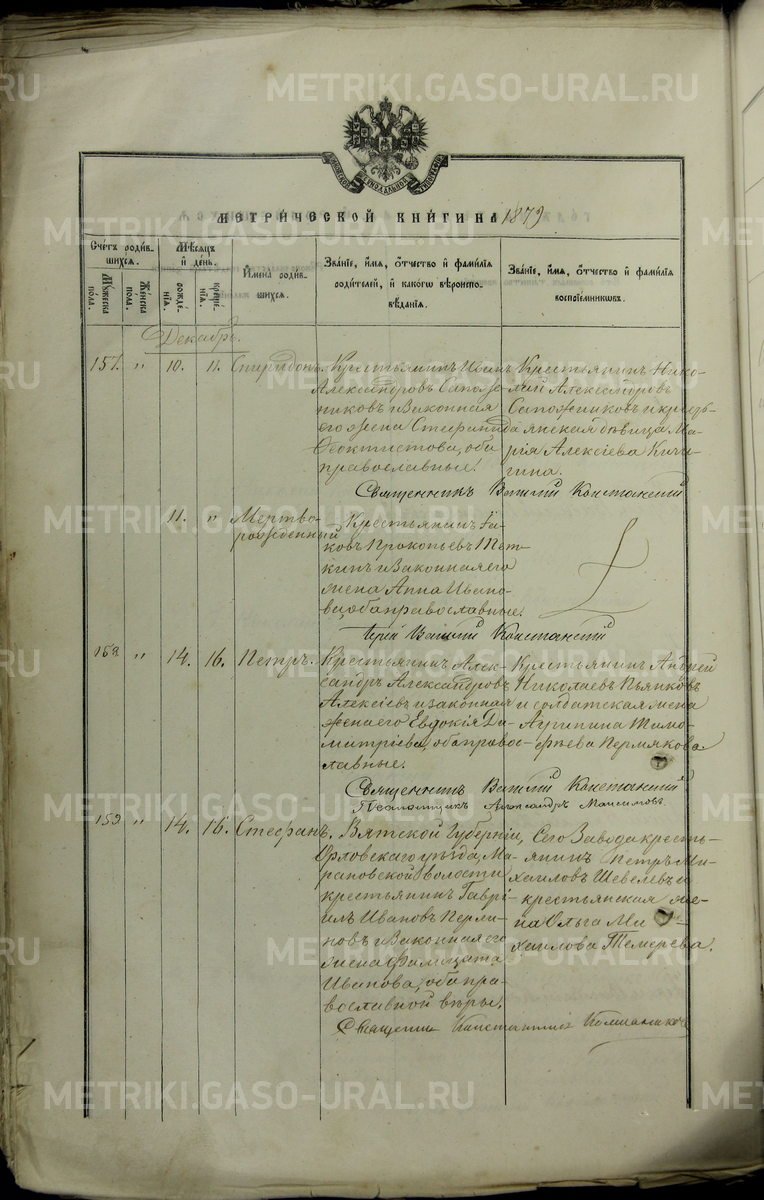 METRIKI.GASO-URAL.RU
МЕТРИЧЕСКОЙ КНИГИ НА 1879
Счетъ родив-
шихся.
Мужеска
пола.
Женска
пола.
Мѣсяцъ
и день.
рожде-
нія.
креще-
нія.
Имена родив-
шихся.
Званіе, имя, отчество и фамилія
родителей, и какого вѣроиспо-
вѣданія.
Званіе, имя, отчество и фамилія
воспріемниковъ.
Декабрь.
157. " 10. 11. Спиридонъ.
Крестьянинъ Иванъ
Александровъ Сапож-
никовъ и законная
его жена Стефанида
Феоктистова, оба
православные.
Крестьянинъ Нико-
лай Александровъ
Сапожниковъ и кресть-
янская дѣвица Ма-
рія Алексіева Кичи-
гина.
Священникъ
11. " Мертво-
рожденный
Крестьянинъ Іа-
ковъ Прокопьевъ Тет-
кинъ и законная его
жена Анна Ивано-
ва, оба православные.
Іерей
158. " 14. 16. Петръ.
Крестьянинъ Алек-
сандръ Александровъ
Алексіевъ и законная
жена его Евдокія Ди-
митріева, оба правос-
лавные.
Крестьянинъ Андрей
Николаевъ Пьянковъ
и солдатская жена
Агрипина Тимо-
фѣева Пермякова
Священникъ
Псаломщикъ Александръ Максимовъ.
159. " 14. 16. Стефанъ.
Вятской Губерніи,
Орловскаго уѣзда, Ма-
рановской волости
крестьянинъ Гаврі-
илъ Ивановъ Перми-
новъ и законная его
жена
Иванова, оба пра-
вославной вѣры.
Сего Завода кресть-
янинъ Петръ Ми-
хаиловъ Шевелевъ и
крестьянская же-
на Ольга Ми-
хаилова Темерева.
Священникъ